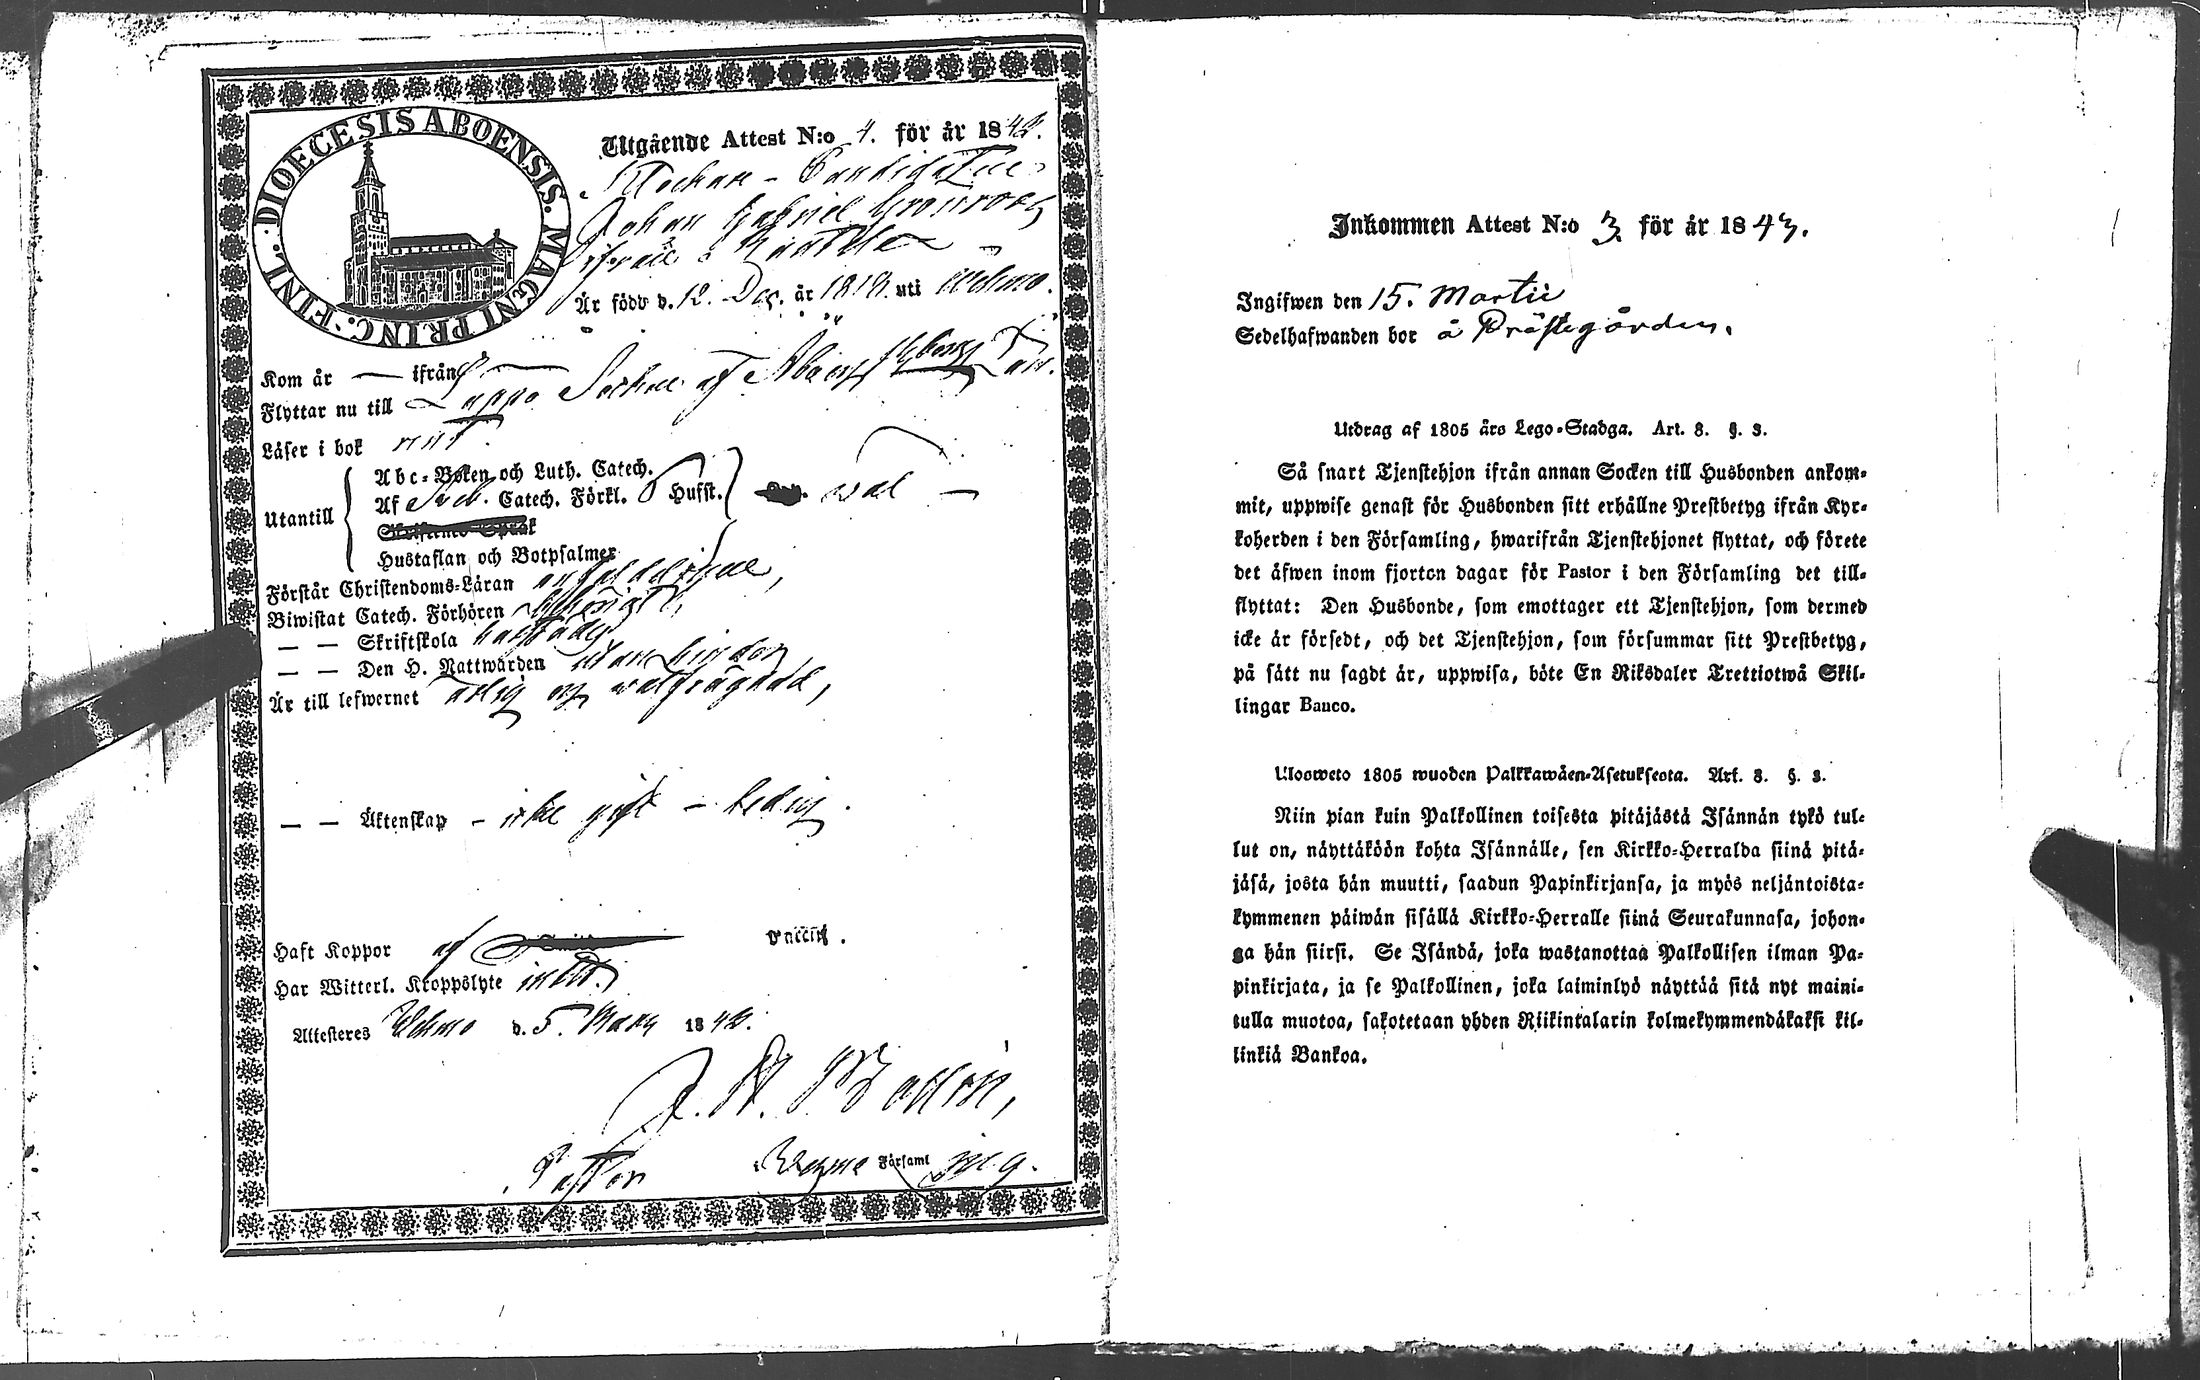 DIOECESIS ABOENSIS. MAGNI PRINC: FINL.
Utgående Attest N:o 4. för år 1843.
Klockare-Candidaten
Johan Gabriel Grönroos
ifrån
Är född d. 12. Dec. år 1818. uti Wehmo.
Kom år — ifrån —
Flyttar nu till Lappo Socken af Åbo och Län.
Läser i bok rent.
Abc-Boken och Luth. Catech.
Af Sveb. Catech. Förkl. Husst.
wäl —
Utantill
Skriftenes Språk
Hustaflan och Botpsalmer
Förstår Christendoms-Läran
Biwistat Catech. Förhören
— — Skriftskola
— — Den H. Nattwarden utan hinder
Är till lefwernet ärlig och wälfrägdad,
— — Äktenskap – icke gift – ledig.
Haft Koppor af Vaccin.
Har Witterl. Kroppslyte intet.
Attesteres Wehmo d. 5. Mars 1843.
Pastor i Wehmo Församl ing.
Inkommen Attest N:o 3. för år 1843.
Ingifwen den 15. Martii
Sedelhafwanden bor å Prästegården.
Utdrag af 1805 års Lego-Stadga. Art. 8. §. 3.
Så snart Tjenstehjon ifrån annan Socken till Husbonden ankom-
mit, uppwise genast för Husbonden sitt erhållne Prestbetyg ifrån Kyr-
koherden i den Församling, hwarifrån Tjenstehjonet flyttat, och förete
det äfwen inom fjorton dagar för Pastor i den Församling det till-
flyttat: Den Husbonde, som emottager ett Tjenstehjon, som dermed
icke är försedt, och det Tjenstehjon, som försummar sitt Prestbetyg,
på sätt nu sagdt är, uppwisa, böte En Riksdaler Trettiotwå Skil-
lingar Banco.
Uloosweto 1805 wuoden Palkkawäen-Asetuksesta. Art. 8. §. 3.
Niin pian kuin Palkollinen toisesta pitäjästä Isännän tykö tul-
lut on, näyttäköön kohta Isännälle, sen Kirkko-Herralda siinä pitä-
jäsä, josta hän muutti, saadun Papinkirjansa, ja myös neljäntoista-
kymmenen päiwän sisällä Kirkko-Herralle siinä Seurakunnasa, johon-
ga hän siirsi. Se Isändä, joka wastanottaa Palkollisen ilman Pa-
pinkirjata, ja se Palkollinen, joka laiminlyö näyttää sitä nyt maini-
tulla muotoa, sakotetaan yhden Riikintalarin kolmekymmendäkaksi kil-
linkiä Bankoa.